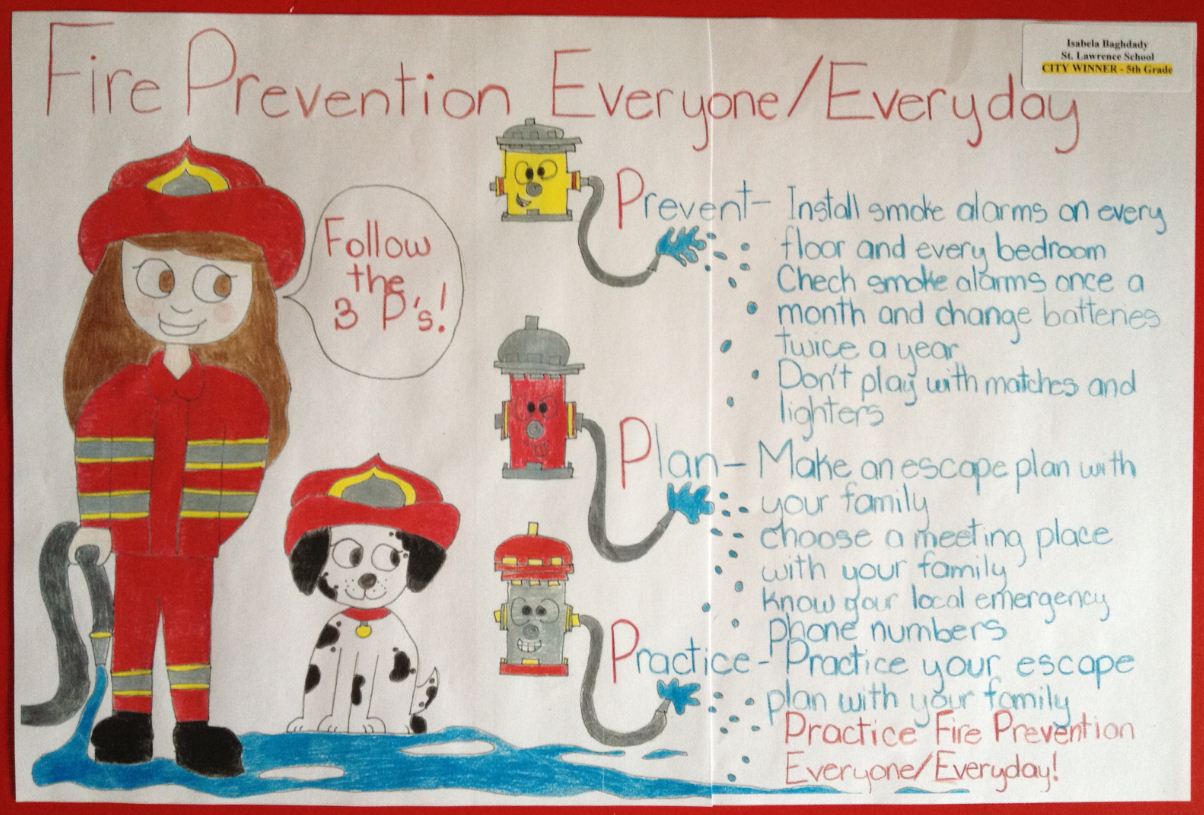 Fire Prevention Everyone/Everyday
Isabela Baghdady
St. Lawrence School
CITY WINNER - 5th Grade
Follow
the
3 P's!
Prevent- Install smoke alarms on every
floor and every bedroom
Chech smoke alarms once a
month and change batteries
twice a year
Don't play with matches and
lighters
Plan- Make an escape plan with
your family
choose a meeting place
with your family
know your local emergency
phone numbers
Practice- Practice your escape
plan with your family
Practice Fire Prevention
Everyone/Everyday!